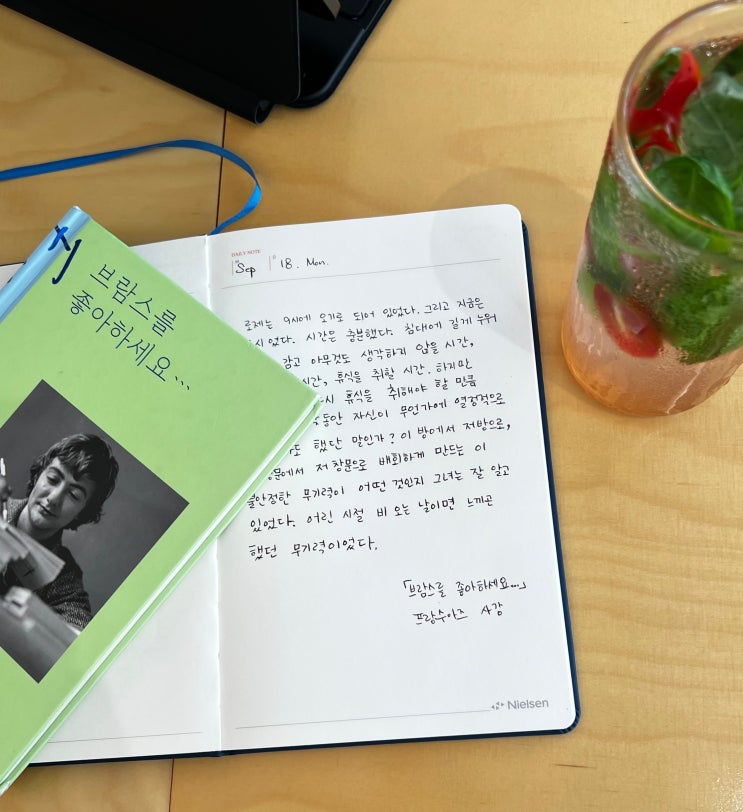 브람스를
좋아하세요...
DAILY NOTE
Sep 18. Mon.
로제는 9시에 오기로 되어 있었다. 그리고 지금은
시였다. 시간은 충분했다. 침대에 길게 누워
감고 아무것도 생각하지 않을 시간,
시간, 휴식을 취할 시간. 하지만
시 휴식을 취해야 할 만큼
동안 자신이 무언가에 열정적으로
했단 말인가? 이 방에서 저방으로,
창문에서 저 창문으로 배회하게 만드는 이
불안정한 무기력이 어떤 것인지 그녀는 잘 알고
있었다. 어린 시절 비 오는 날이면 느끼곤
했던 무기력이었다.
「브람스를 좋아하세요...」
프랑수아즈 사강
Nielsen